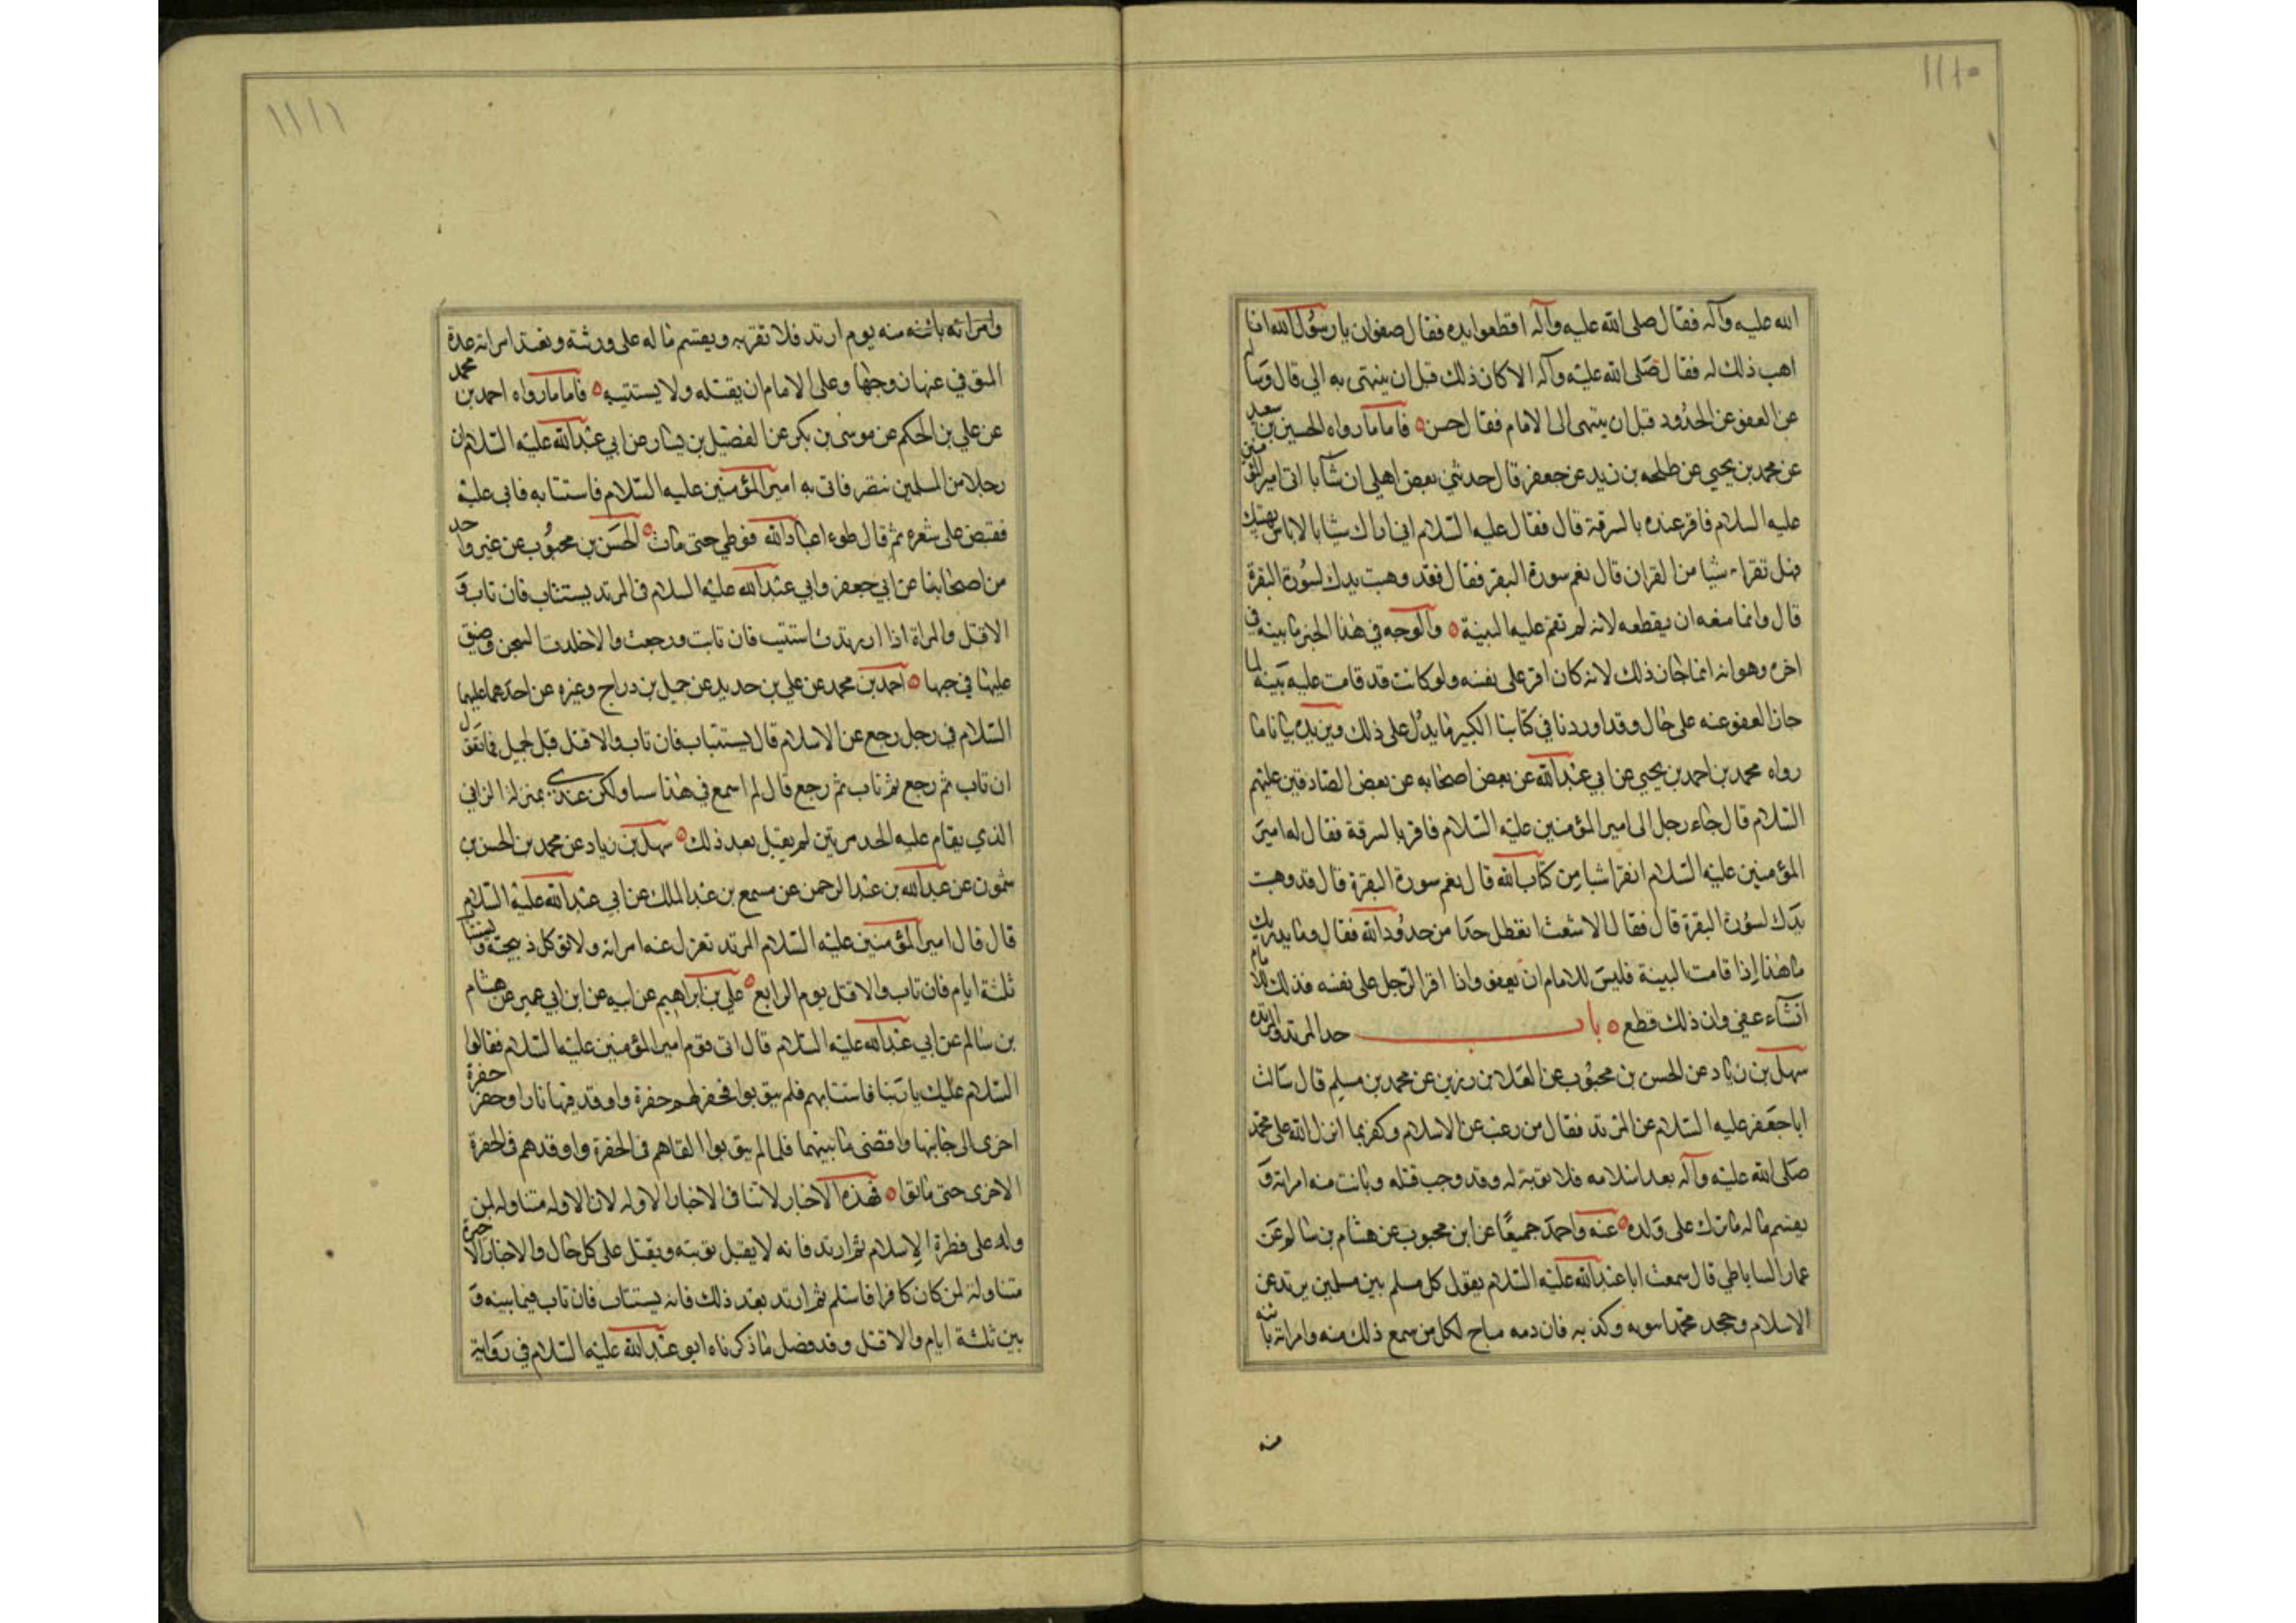 ١١١٠
الله عليه وآله فقال صلى الله عليه وآله اقطعوا يده فقال صفوان يا رسول الله انا
اهب ذلك له فقال صلى الله عليه وآله الا كان ذلك قبل ان ينتهى به الي قال وسالته
عن العفو عن الحدود قبل ان ينتهى الى الامام فقال حسن ه فاما ما رواه الحسين بن سعيد
عن محمد بن يحيى عن طلحه بن زيد عن جعفر قال حدثني بعض اهلي ان شابا اتى امير المؤمنين
عليه السلام فاقر عنده بالسرقة قال فقال عليه السلام اني اراك شابا لا باس بهبتك
فهل تقراء شيا من القران قال نعم سورة البقرة فقال فقد وهبت يدك لسورة البقرة
قال وانما منعه ان يقطعه لانه لم تقم عليه البينة ه والوجه في هذا الخبر ما بينه في
اخره وهو انه انما جاز ذلك لانه كان اقر على نفسه ولو كانت قد قامت عليه بينة لما
جاز العفو عنه على حال وقد اوردنا في كتابنا الكبير ما يدل على ذلك ويزيده بيانا ما
رواه محمد بن احمد بن يحيى عن ابي عبد الله عن بعض اصحابه عن بعض الصادقين عليهم
السلام قال جاء رجل الى امير المؤمنين عليه السلام فاقر بالسرقة فقال له امير
المؤمنين عليه السلام اتقرا شيا من كتاب الله قال نعم سورة البقرة قال قد وهبت
يدك لسورة البقرة قال فقال الاشعث اتعطل حدا من حدود الله فقال وما يدريك
ما هذا اذا قامت البينة فليس للامام ان يعفو واذا اقر الرجل على نفسه فذلك الى الامام
ان شاء عفى وان ذلك قطع ه باب حد المرتد والمرتدة
سهل بن زياد عن الحسن بن محبوب عن العلا بن رزين عن محمد بن مسلم قال سالت
ابا جعفر عليه السلام عن المرتد فقال من رغب عن الاسلام وكفر بما انزل الله على محمد
صلى الله عليه وآله بعد اسلامه فلا توبة له وقد وجب قتله وبانت منه امراته و
يقسم ماله ما ترك على ولده ه عنه واحمد جميعا عن ابن محبوب عن هشام بن سالم عن
عمار الساباطي قال سمعت ابا عبد الله عليه السلام يقول كل مسلم بين مسلمين يرتد عن
الاسلام وجحد محمدا نبوته وكذبه فان دمه مباح لكل من سمع ذلك منه وامراته بائنه
منه
١١١١
وامراته بائنه منه يوم ارتد فلا تقربه ويقسم ماله على ورثته وتعتد امراته عدة
المتوفي عنها زوجها وعلى الامام ان يقتله ولا يستتيبه ه فاما ما رواه احمد بن محمد
عن علي بن الحكم عن موسى بن بكر عن الفضيل بن يسار عن ابي عبد الله عليه السلام ان
رجلا من المسلمين تنصر فاتى به امير المؤمنين عليه السلام فاستتابه فابي عليه
فقبض على شعره ثم قال طوءا عباد الله فوطي حتى مات ه الحسن بن محبوب عن غير واحد
من اصحابنا عن ابي جعفر وابي عبد الله عليه السلام في المرتد يستتاب فان تاب و
الا قتل والمراة اذا ارتدت استتيب فان تابت ورجعت والا خلدت السجن وضيق
عليها في حبها ه احمد بن محمد عن علي بن حديد عن جميل بن دراج وغيره عن احدهما عليهما
السلام في رجل رجع عن الاسلام قال يستتاب فان تاب والا قتل قيل لجميل فما تقول
ان تاب ثم رجع ثم تاب ثم رجع قال لم اسمع في هذا سيا ولكن عندي بمنزلة الزاني
الذي يقام عليه الحد مرتين لم يقبل بعد ذلك ه سهل بن زياد عن محمد بن الحسن بن
شمون عن عبد الله بن عبد الرحمن عن مسمع بن عبد الملك عن ابي عبد الله عليه السلام
قال قال امير المؤمنين عليه السلام المرتد تعزل عنه امراته ولا توكل ذبيحته ويستتاب
ثلثة ايام فان تاب والا قتل يوم الرابع ه علي بن ابراهيم عن ابيه عن ابن ابي عمير عن هشام
بن سالم عن ابي عبد الله عليه السلام قال اتى قوم امير المؤمنين عليه السلام فقالوا
السلام عليك يا ربنا فاستتابهم فلم يتوبوا فحفر لهم حفرة واوقد فيها نارا وحفر حفرة
اخرى الى جانبها وافضى ما بينهما فلما لم يتوبوا القاهم في الحفرة واوقدهم في الحفرة
الاخرى حتى ماتوا ه فهذه الاخبار لا تنافي الاخبار الاوله لان الاوله متناوله لمن
ولد على فطرة الاسلام ثم ارتد فانه لا يقبل توبته ويقتل على كل حال والاخبار الاخيرة
متناولة لمن كان كافرا فاسلم ثم ارتد بعد ذلك فانه يستتاب فان تاب فيما بينه و
بين ثلثة ايام والا قتل وقد فصل ما ذكرناه ابو عبد الله عليه السلام في رواية